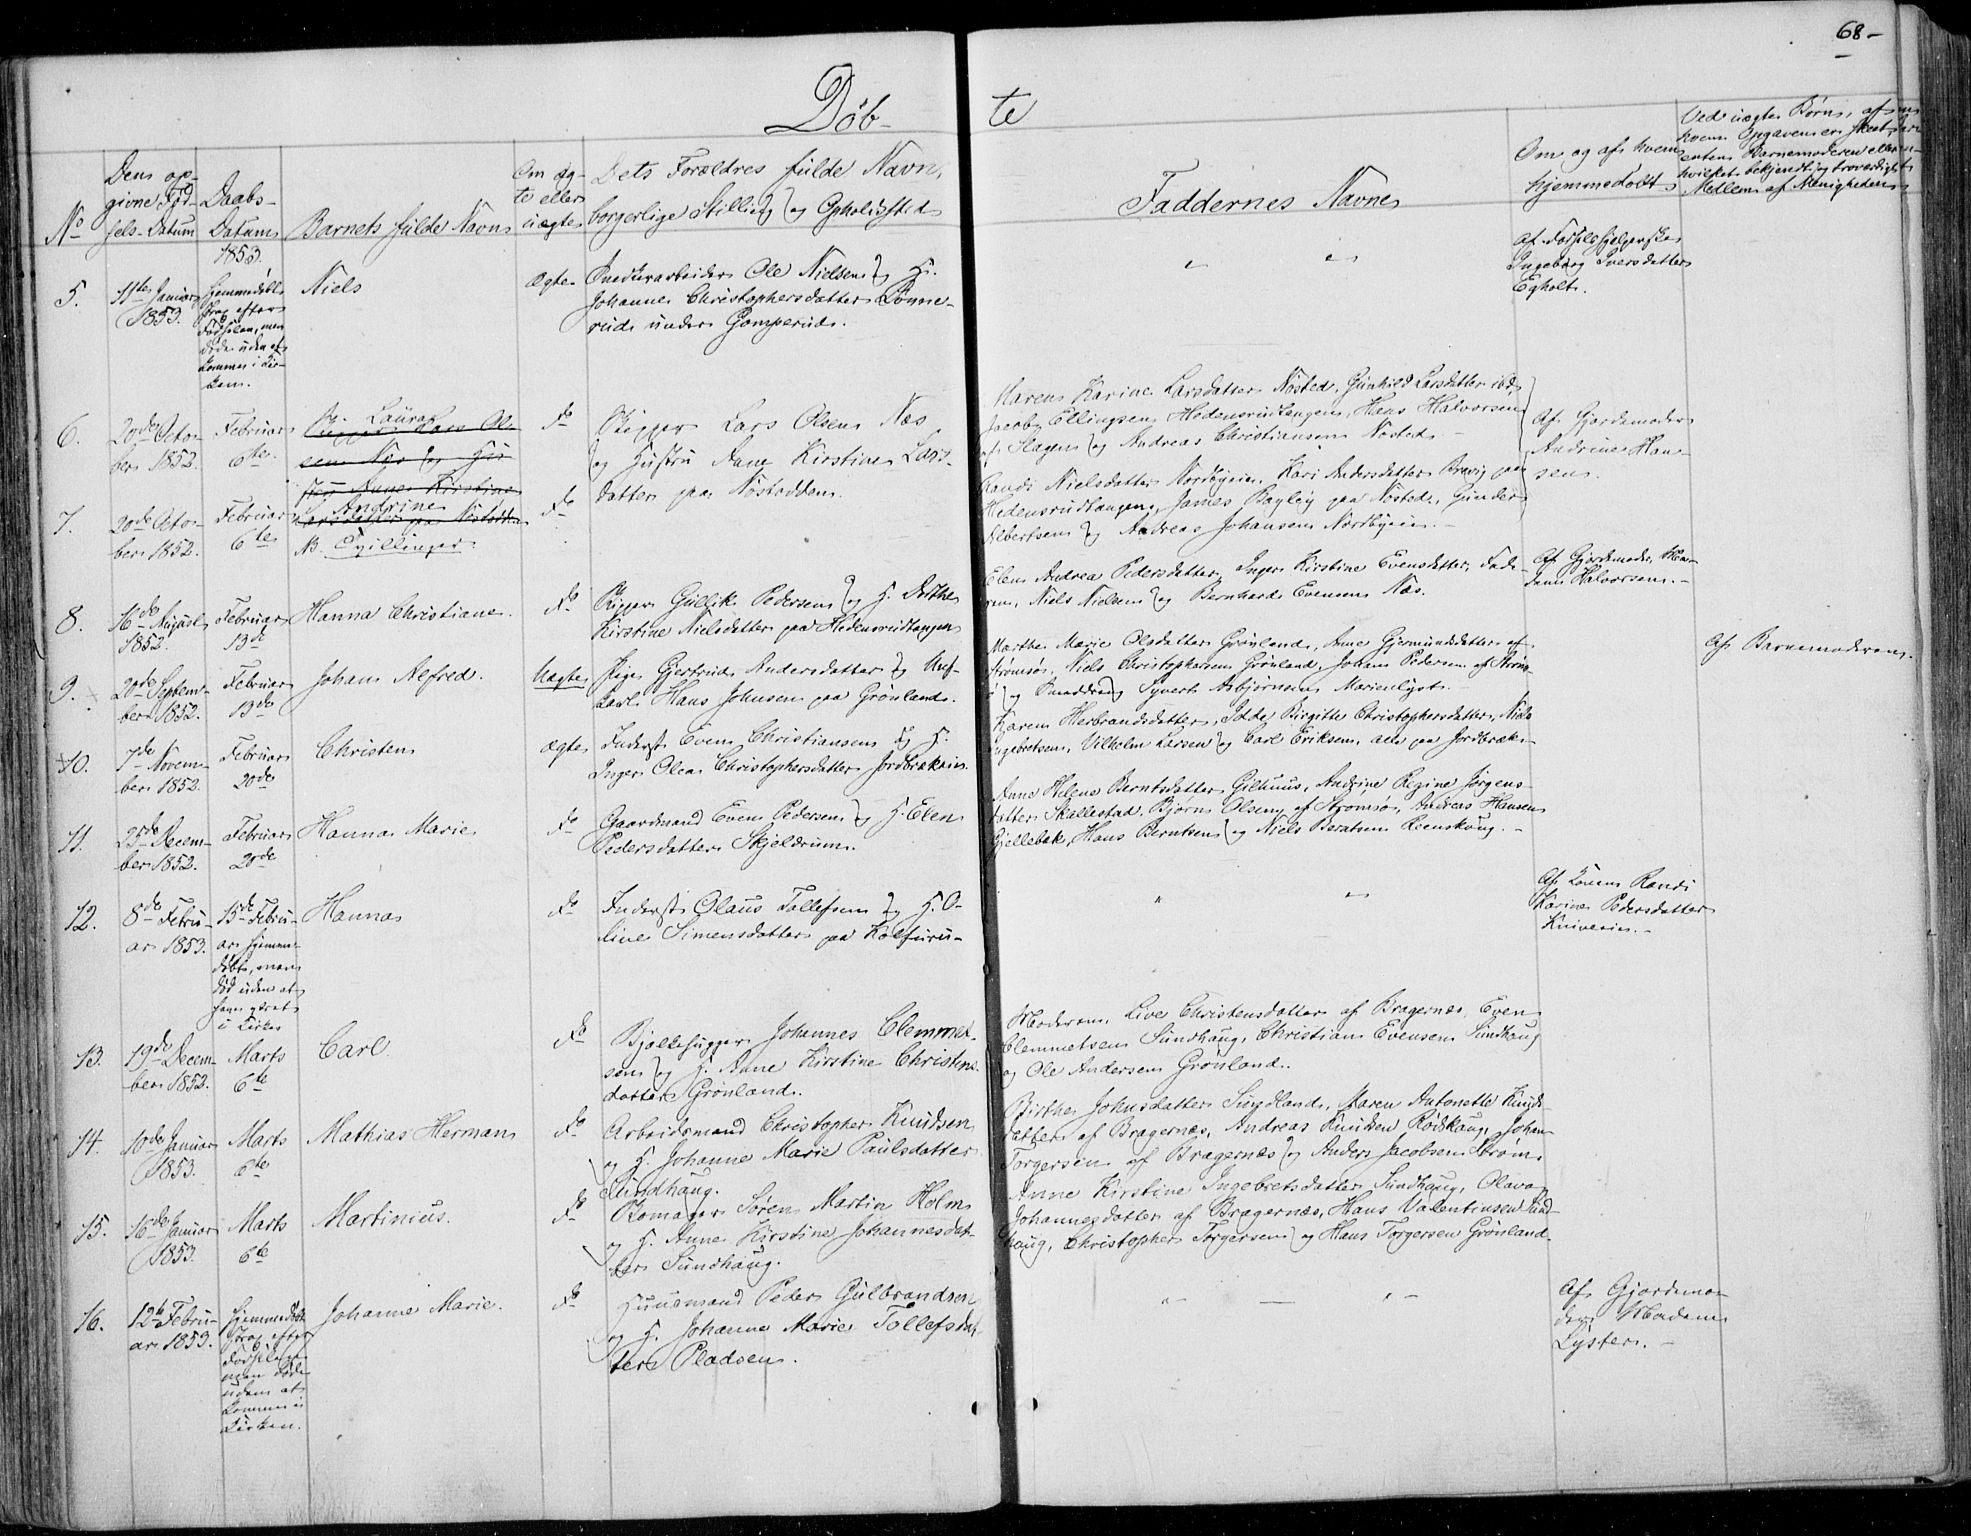 68-
Döb- te
No
Dens op-
givne Föd-
sels-Datum
Daabs-
Datum
1853.
Barnets fulde Navn
Om æg-
te eller
uægte
Dets Forældres fulde Navn,
borgerlige Stilling og Opholdssted
Faddernes Navne
Om og af hvem
hjemmedöbt
Ved uægte Börn, af
hvem Opgaven er skeet,
enten Barnemoderen eller
hvilket bekjendt og troværdigt
Medlem af Menigheden
5.
11te Januar
1853.
Hjemmedöbt
strax efter
Födselen, men
döde uden at
komme i Kir-
ken.
Niels
Ægte
Snedkerarbeider Ole Nielsen og H.
Johanne Christophersdatter
rud under Gomperud.
Af Födselshjelperske
Ingeborg Iversdatter
Egholt.
6.
20de Octo-
ber 1852.
Februar
6te
Laura
do
Rigger Lars Olsen Næs
og Hustru Anne Kirstine Lars-
datter paa Nöstodden.
Maren Karine Larsdatter Nösted, Gunhild Larsdatter ibd,
Jacob Ellingsen Hedensrudtangen, Hans Halvorsen
af Hagen og Andreas Christiansen Nösted.
Af Gjordemoder
Andrine Han-
sen.
7.
20de Octo-
ber 1852.
Februar
6te
Andrine
NB. Tvillinger
do
Randi Nielsdatter Nordbyeien, Kari Andersdatter Brevig paa
Hedensrudtangen, James Bayley paa Nösted, Gunder
Albertsen og Andreas Johansen Nordbyeien.
8.
16de August
1852.
Februar
13de
Hanna Christiane.
do
Rigger Gullik Pedersen og H. Dorthe
Kirstine Nielsdatter paa Hedensrudtangen
Elen Andrea Pedersdatter, Inger Kirstine Evensdatter, Fade-
ren, Niels Nielsen og Bernhard Evensen Næs.
Af Gjordemoder Ma-
dam Halvorsen.
9.
20de Septem-
ber 1852.
Februar
13de
Johan Alfred.
Uægte
Pige Gjertrud Andersdatter og Ung-
karl Hans Johnsen paa Grönland.
Marthe Marie Olsdatter Grönland, Anne Gjermundsdatter af
Strömsö, Niels Christophersen Grönland, Johan Pedersen af Ström-
sö og Smeddreng Syvert Asbjörnsen Marienlyst.
Af Barnemoderen.
10.
7de Novem-
ber 1852.
Februar
20de
Christen
Ægte
Inderst Even Christiansen og H.
Inger Olea Christophersdatter Jordbrækeie.
Karen Herbrandsdatter, Birgitte Christophersdatter, Niels
Ingebretsen, Vilhelm Larsen og Carl Eriksen, alle paa Jordbræk.
11.
25de Decem-
ber 1852.
Februar
20de
Hanna Marie
do
Gaardmand Even Pedersen og H. Elen
Pedersdatter Skjeldrum.
Anne Helene Berntsdatter Gilhuus, Andrine Regine Jörgens-
datter Skallestad, Björn Olsen af Strömsö, Andreas Hansen
Gjellebæk, Hans Berntsen og Niels Berntsen Reenskoug.
12.
8de Febru-
ar 1853.
15de Febru-
ar hjemme-
döbt, men
död uden at
have været
i Kirke
Hanna
do
Inderst Olaus Tollefsen og H. O-
line Simensdatter paa Kolfuru-
Af Konen Randi
Karine Pedersdatter
Kniveeie.
13.
19de Decem-
ber 1852.
Marts
6te
Carl.
do
Bjælkehugger Johannes Clemmet-
sen og H. Anne Kirstine Christens-
datter Grönland.
Moderen, Live Christensdatter af Bragernæs, Even
Clemmetsen Sundhaug, Christian Evensen Sundhaug
og Ole Andersen Grönland.
14.
10de Januar
1853.
Marts
6te
Mathias Herman
do
Arbeidsmand Christopher Knudsen
og H. Johanne Marie Paulsdatter
Sundhaug.
Birthe Johnsdatter Sundland, Maren Antonette Knuds-
datter af Bragernæs, Andreas Knudsen Rödskoug, Johan
Torgersen af Bragernæs og Anders Jacobsen Ström.
15.
16de Januar
1853.
Marts
6te
Martinius.
do
Skomager Sören Martin Holm
og H. Anne Kirstine Johannesdat-
ter Sundhaug.
Anne Kirstine Ingebretsdatter Sundhaug, Olava
Johannesdatter af Bragernæs, Hans Valentinsen Sund-
haug, Christopher Torgersen og Hans Torgersen Grönland.
16.
12te Febru-
ar 1853.
Hjemmedöbt
strax efter
Födselen
men döde
uden at
komme i
Kirken.
Johanne Marie.
do
Huusmand Peder Gulbrandsen
og H. Johanne Marie Tollefsdat-
ter Pladsen.
Af Gjordemo-
der Madam
Lyster.